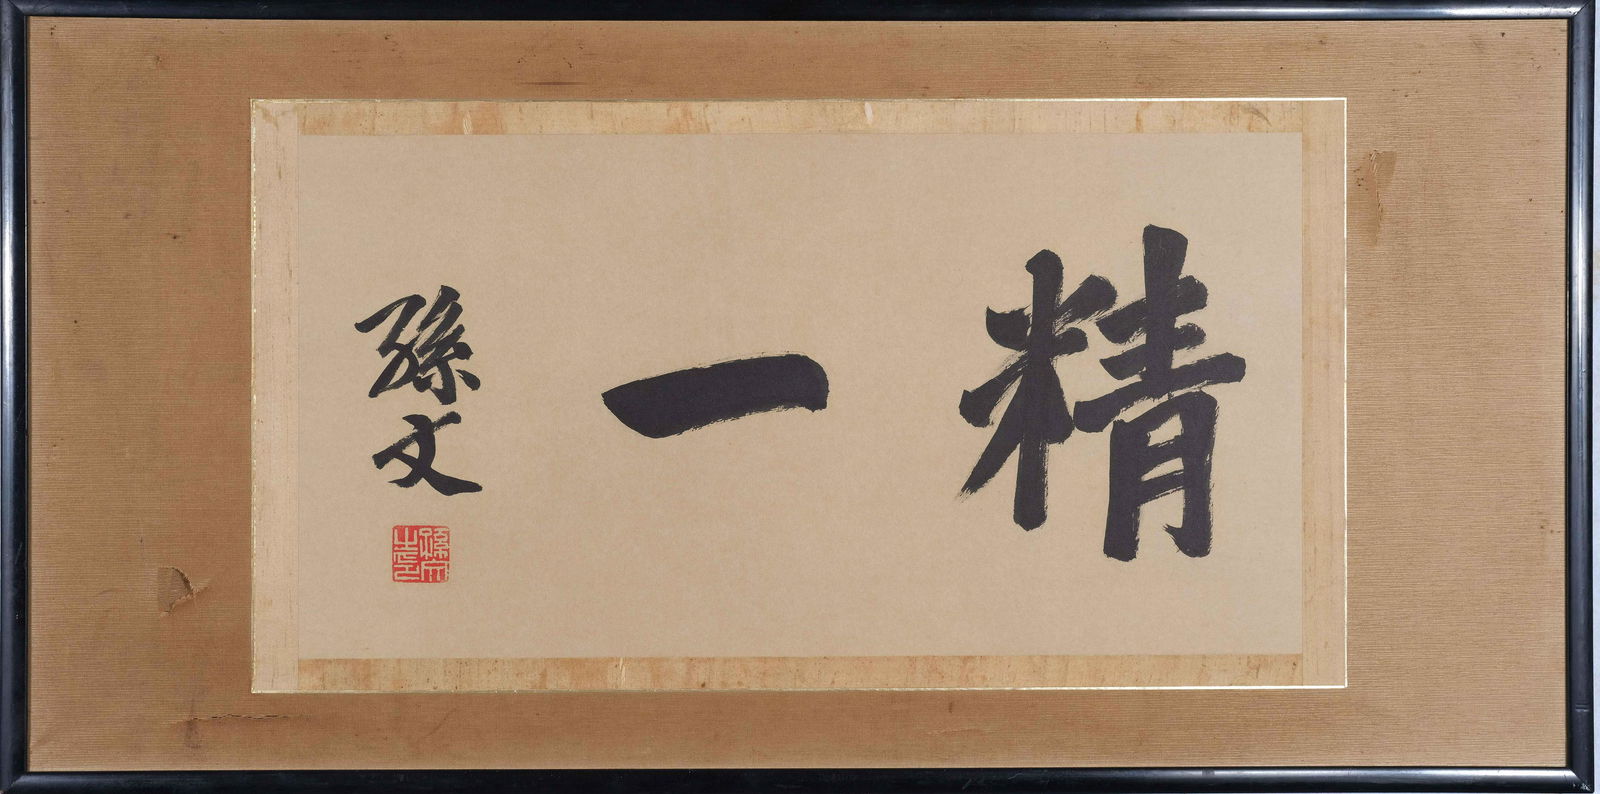 精一
孫文
孫文之印